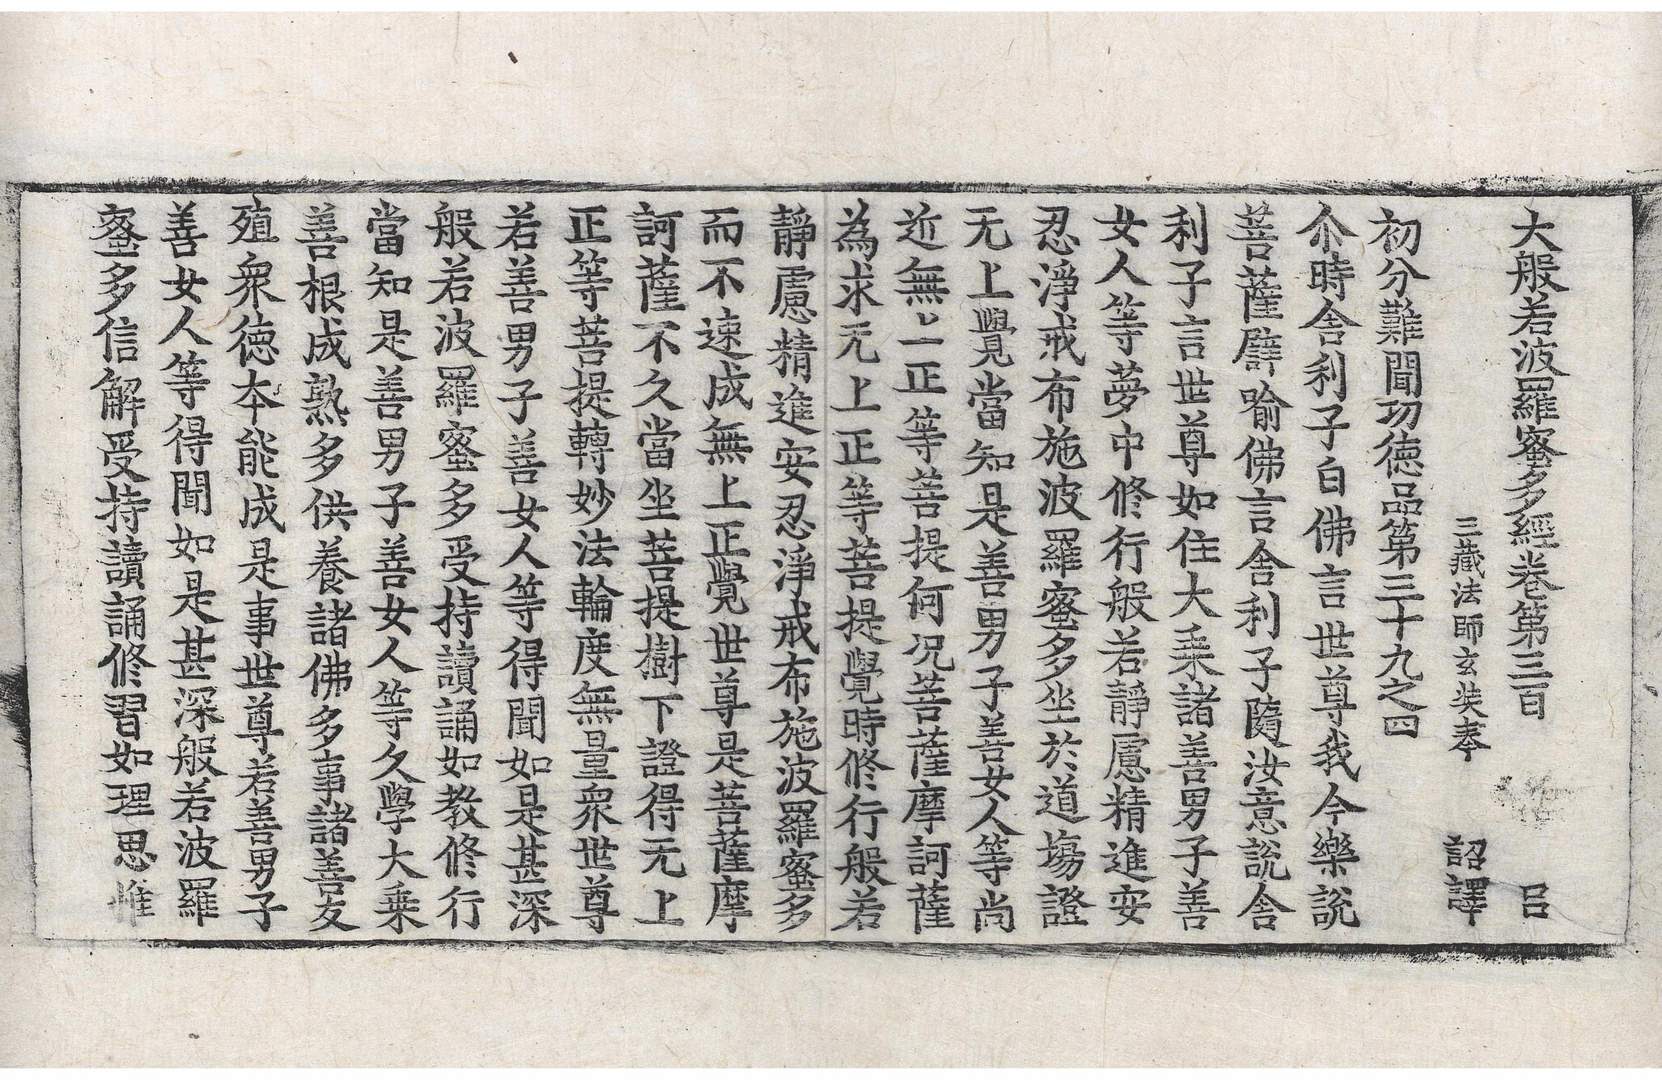 大般若波羅蜜多經卷第三百 呂
三藏法師玄奘奉 詔譯
初分難聞功德品第三十九之四
尒時舍利子白佛言世尊我今樂說
菩薩譬喻佛言舍利子隨汝意說舍
利子言世尊如住大乘諸善男子善
女人等夢中修行般若靜慮精進安
忍淨戒布施波羅蜜多坐於道場證
无上覺當知是善男子善女人等尚
近無上正等菩提何况菩薩摩訶薩
為求无上正等菩提覺時修行般若
靜慮精進安忍淨戒布施波羅蜜多
而不速成無上正覺世尊是菩薩摩
訶薩不久當坐菩提樹下證得无上
正等菩提轉妙法輪度無量衆世尊
若善男子善女人等得聞如是甚深
般若波羅蜜多受持讀誦如教修行
當知是善男子善女人等久學大乘
善根成熟多供養諸佛多事諸善友
殖衆德本能成是事世尊若善男子
善女人等得聞如是甚深般若波羅
蜜多信解受持讀誦修習如理思惟